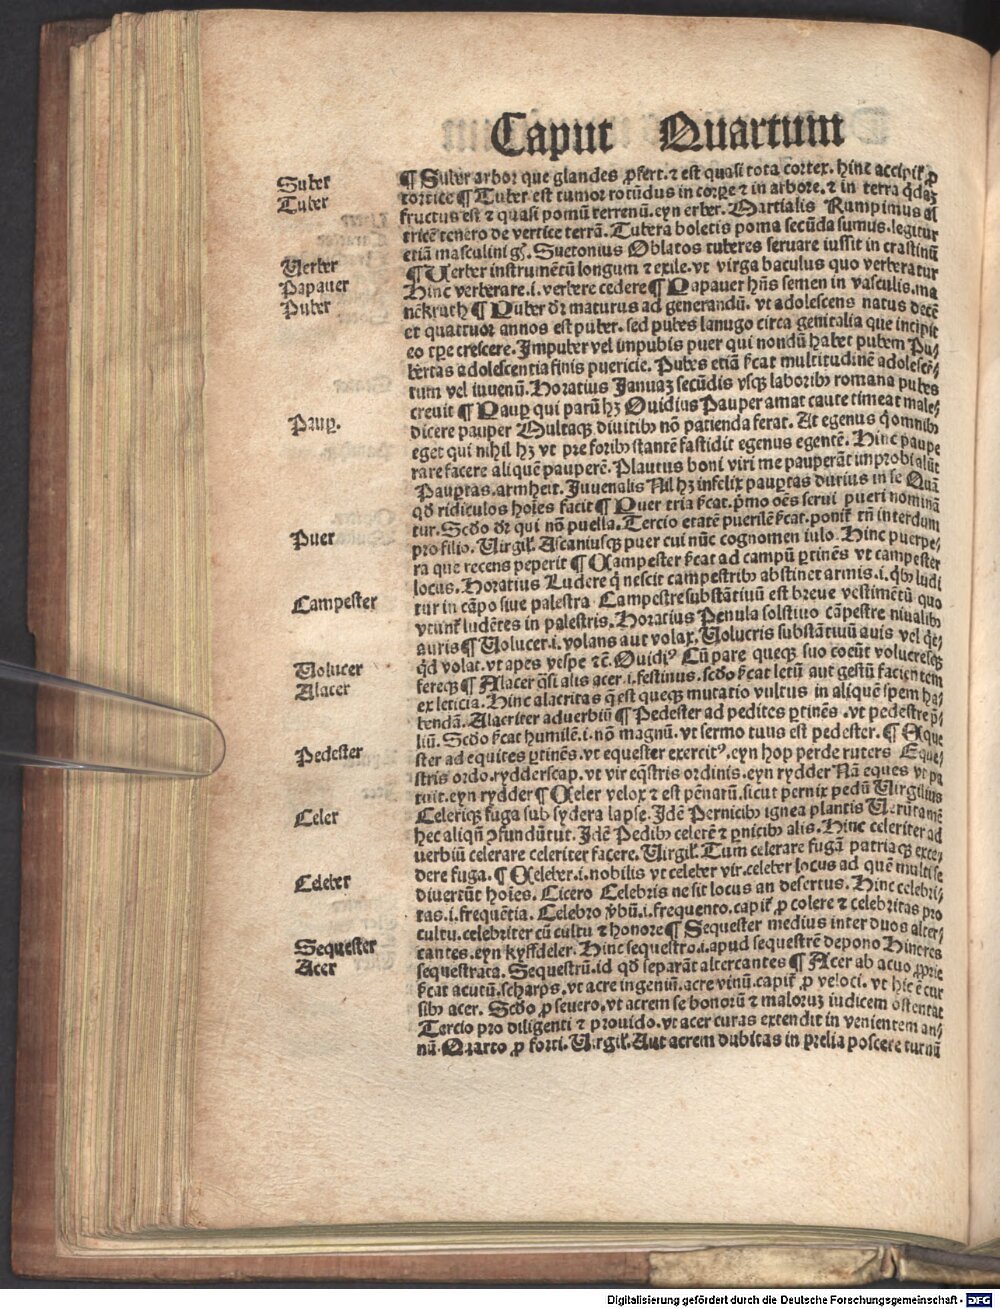 Caput Quartum
Suber
Tuber
Verber
Papauer
Puber
Paup̲.
Puer
Campester
Volucer
Alacer
Pedester
Celer
Celeber
Sequester
Acer
¶ Suber arbor que glandes ꝓfert. ⁊ est quasi tota cortex. hinc accipit̉ ꝓ
cortice ¶ Tuber est tumor rotūdus in corpe ⁊ in arbore. ⁊ in terra q̄daꝫ
fructus est ⁊ quasi pomū terrenū. eyn erber. Martialis Rumpimus al
tricē tenero de vertice terrā. Tubera boletis poma secūda sumus. legitur
etiā masculini gͥs. Suetonius Oblatos tuberes seruare iussit in crastinū
¶ Verber instrumētū longum ⁊ exile. vt virga baculus quo verberatur
Hinc verberare .i. verbere cedere ¶ Papauer hn̄s semen in vasculis. ma
nēkruth ¶ Puber dr̄ maturus ad generandū. vt adolescens natus decē
et quattuor annos est puber. sed pubes lanugo circa genitalia que incipit
eo tp̄e crescere. Impuber vel impubis puer qui nondū habet pubem Pu⸗
bertas adolescentia finis puericie. Pubes etiā sͥcat multitudinē adolescē⸗
tum vel iuuenū. Horatius Januaꝫ secūdis vsqꝫ laboribꝰ romana pubes
creuit ¶ Paup̲ qui parū hꝫ Ouidius Pauper amat caute timeat male⸗
dicere pauper Multaqꝫ diuitibꝰ nō patienda ferat. At egenus q̇ omnibꝰ
eget qui nihil hꝫ vt pre foribꝰ stantē fastidit egenus egentē. Hinc paupe
rare facere aliquē pauperē. Plautus boni viri me pauperāt improbi alūt
Paup̲tas. armheit. Juuenalis Nil hꝫ infelix paup̲tas durius in se Quā
qḋ ridiculos hoīes facit ¶ Puer tria sͥcat. pͥmo oēs serui pueri nominā
tur. Scḋo dr̄ qui nō puella. Tercio etatē puerilē sͥcat. ponit̉ tn̄ interdum
pro filio. Virgil̉. Ascaniusqꝫ puer cui nūc cognomen iulo. Hinc puerpe⸗
ra que recens peperit ¶ Campester sͥcat ad campū p̲tinēs vt campester
locus. Horatius Ludere q̇ nescit campestribꝰ abstinet armis .i. q̇bꝰ ludi
tur in cāpo siue palestra Campestre substātiuū est breue vestimētū quo
vtunt̉ ludētes in palestris. Horatius Penula solstitio cāpestre niualibꝰ
auris ¶ Volucer .i. volans aut volax. Volucris substātiuū auis vel q̇c⸗
qḋ volat. vt apes vespe ⁊c. Ouidiꝰ Cū pare queqꝫ suo coeūt volucresqꝫ
fereqꝫ ¶ Alacer q̄si alis acer .i. festinus. scḋo sͥcat letū aut gestū facientem
ex leticia. Hinc alacritas q̄ est queqꝫ mutatio vultus in aliquē spem ha⸗
bendā. Alacriter aduerbiū ¶ Pedester ad pedites p̲tinēs. vt pedestre p̄⸗
liū. Scḋo sͥcat humilē .i. nō magnū. vt sermo tuus est pedester. ¶ Eque
ster ad equites p̲tinēs. vt equester exercitꝰ. eyn hop perde ruters Eque⸗
stris ordo. rydderscap. vt vir eq̄stris ordinis. eyn rydder Nā eques vt pa
tuit. eyn rydder ¶ Celer velox ⁊ est pēnarū. sicut pernix pedū Virgilius
Celeriqꝫ fuga sub sydera lapse. Idē Pernicibꝰ ignea plantis Verūtamē
hec aliqn̄ ꝯfundūtut. Idē Pedibꝰ celerē ⁊ p̲nicibꝰ alis. Hinc celeriter ad
uerbiū celerare celeriter facere. Virgil̉. Tum celerare fugā patriaqꝫ exce⸗
dere fuga. ¶ Celeber .i. nobilis vt celeber vir. celeber locus ad quē multi se
diuertūt hoīes. Cicero Celebris ne sit locus an desertus. Hinc celebri⸗
tas .i. frequētia. Celebro v̄bū .i. frequento. capit̉ ꝓ colere ⁊ celebritas pro
cultu. celebriter cū cultu ⁊ honore ¶ Sequester medius inter duos alter⸗
cantes. eyn kyffdeler. Hinc sequestro .i. apud sequestrē depono Hinc res
sequestrata. Sequestrū .id qḋ separāt altercantes ¶ Acer ab acuo ꝓprie
sͥcat acutū. scharps. vt acre ingeniū. acre vinū. capit̉ ꝓ veloci. vt hic ē cur
sibꝰ acer. Scḋo ꝓ seuero. vt acrem se bonorū ⁊ maloruꝫ iudicem ostentat
Tercio pro diligenti ⁊ prouido. vt acer curas extendit in venientem an⸗
nū. Quarto ꝓ forti. Virgil̉. Aut acrem dubitas in prelia poscere turnū
Digitalisierung gefördert durch die Deutsche Forschungsgemeinschaft - DFG